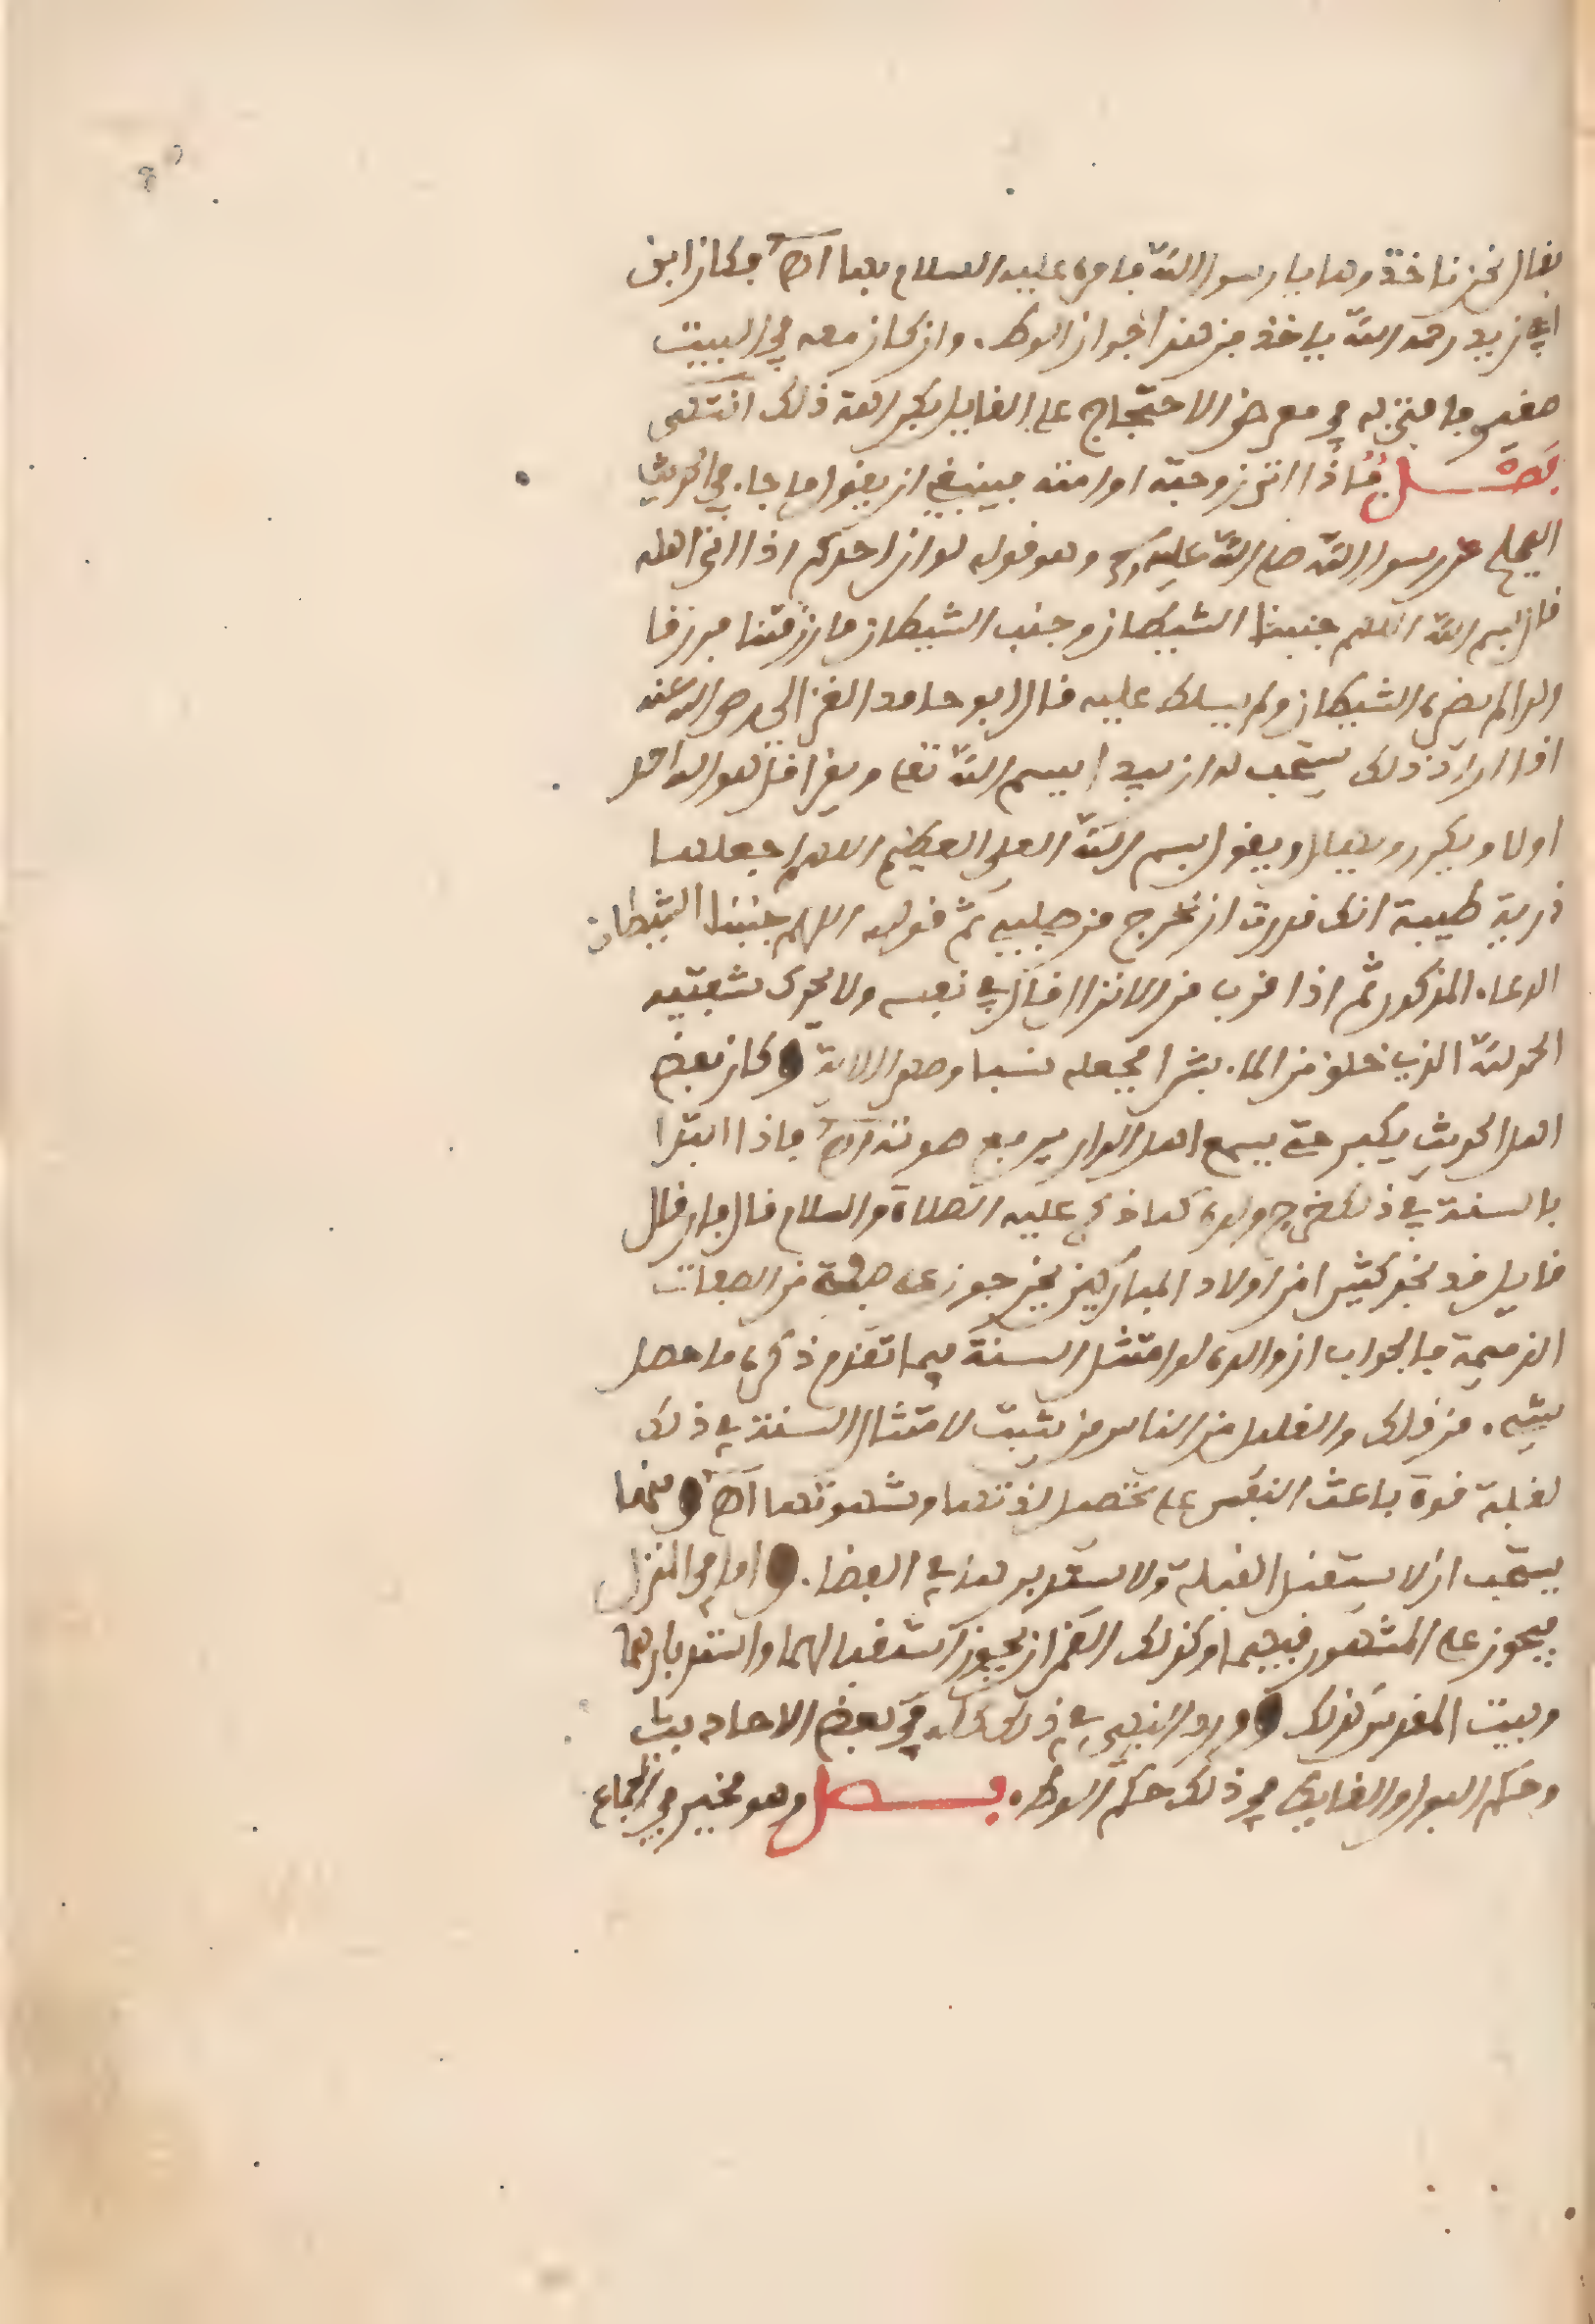 فقال نحن ناخذ رها يا رسول الله فامره عليه السلام بها اه فكان ابن
ابي زيد رحمه الله ياخذ من هذا جواز الوطء وان كان معه في البيت
صغير في معرض الاحتجاج على القايل بكراهة ذلك انتهى
فصل فاذا اتى زوجته او امته فينبغي ان يقول ما جاء في الحديث
الصحيح عن رسول الله صلى الله عليه وسلم وهو قوله لو ان احدكم اذا اتى اهله
قال بسم الله اللهم جنبنا الشيطان وجنب الشيطان ما رزقتنا فرزقا
الولد لم يضره الشيطان ولم يسلط عليه قال ابو حامد الغزالي رضي الله عنه
اذا اراد ذلك يستحب له ان يبدا ببسم الله تعلى ويقرا قل هو الله احد
اولا ويكبر ويهلل ويقول بسم الله العلي العظيم اللهم اجعلها
ذرية طيبة انك قدرت ان تخرج من صلبي ثم قوله اللهم جنبنا الشيطان
الدعاء المذكور ثم اذا قرب من الانزال قال في نفسه ولا يحرك شفتيه
الحمد لله الذي خلق من الماء بشرا فجعله نسبا وصهرا الاية وكان بعض
اهل الحديث يكبر حتى يسمع اهل الدار يرفع صوته اه فاذا ابتدا
بالسنة في ذلك خرج ولده كما ذكر عليه الصلاة والسلام قال فان قال
قايل قد نجد كثيرا من اولاد المباركين يخرجون على صفة من الصفات
الذميمة فالجواب ان والده لو امتثل السنة فيما تقدم ذكره ما حصل
شيء من ذلك والقليل من الناس من يثبت لامتثال السنة في ذلك
لغلبة قوة باعث النفس على تحصيل لذتها وشهوتها اه ومنها
يستحب ان لا يستقبل القبلة ولا يستدبرها في الفضاء واما في المنزل
فيجوز على المشهور فيهما وكذلك القمران يجوز استقبالهما واستدبارهما
وبيت المقدس كذلك وورد النهي في ذلك كله في بعض الاحاديث
وحكم البول والغايط في ذلك حكم الوطء فصل وهو مخير في الجماع